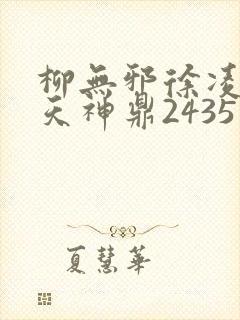 柳無邪徐凌
天神鼎2435
夏慧華